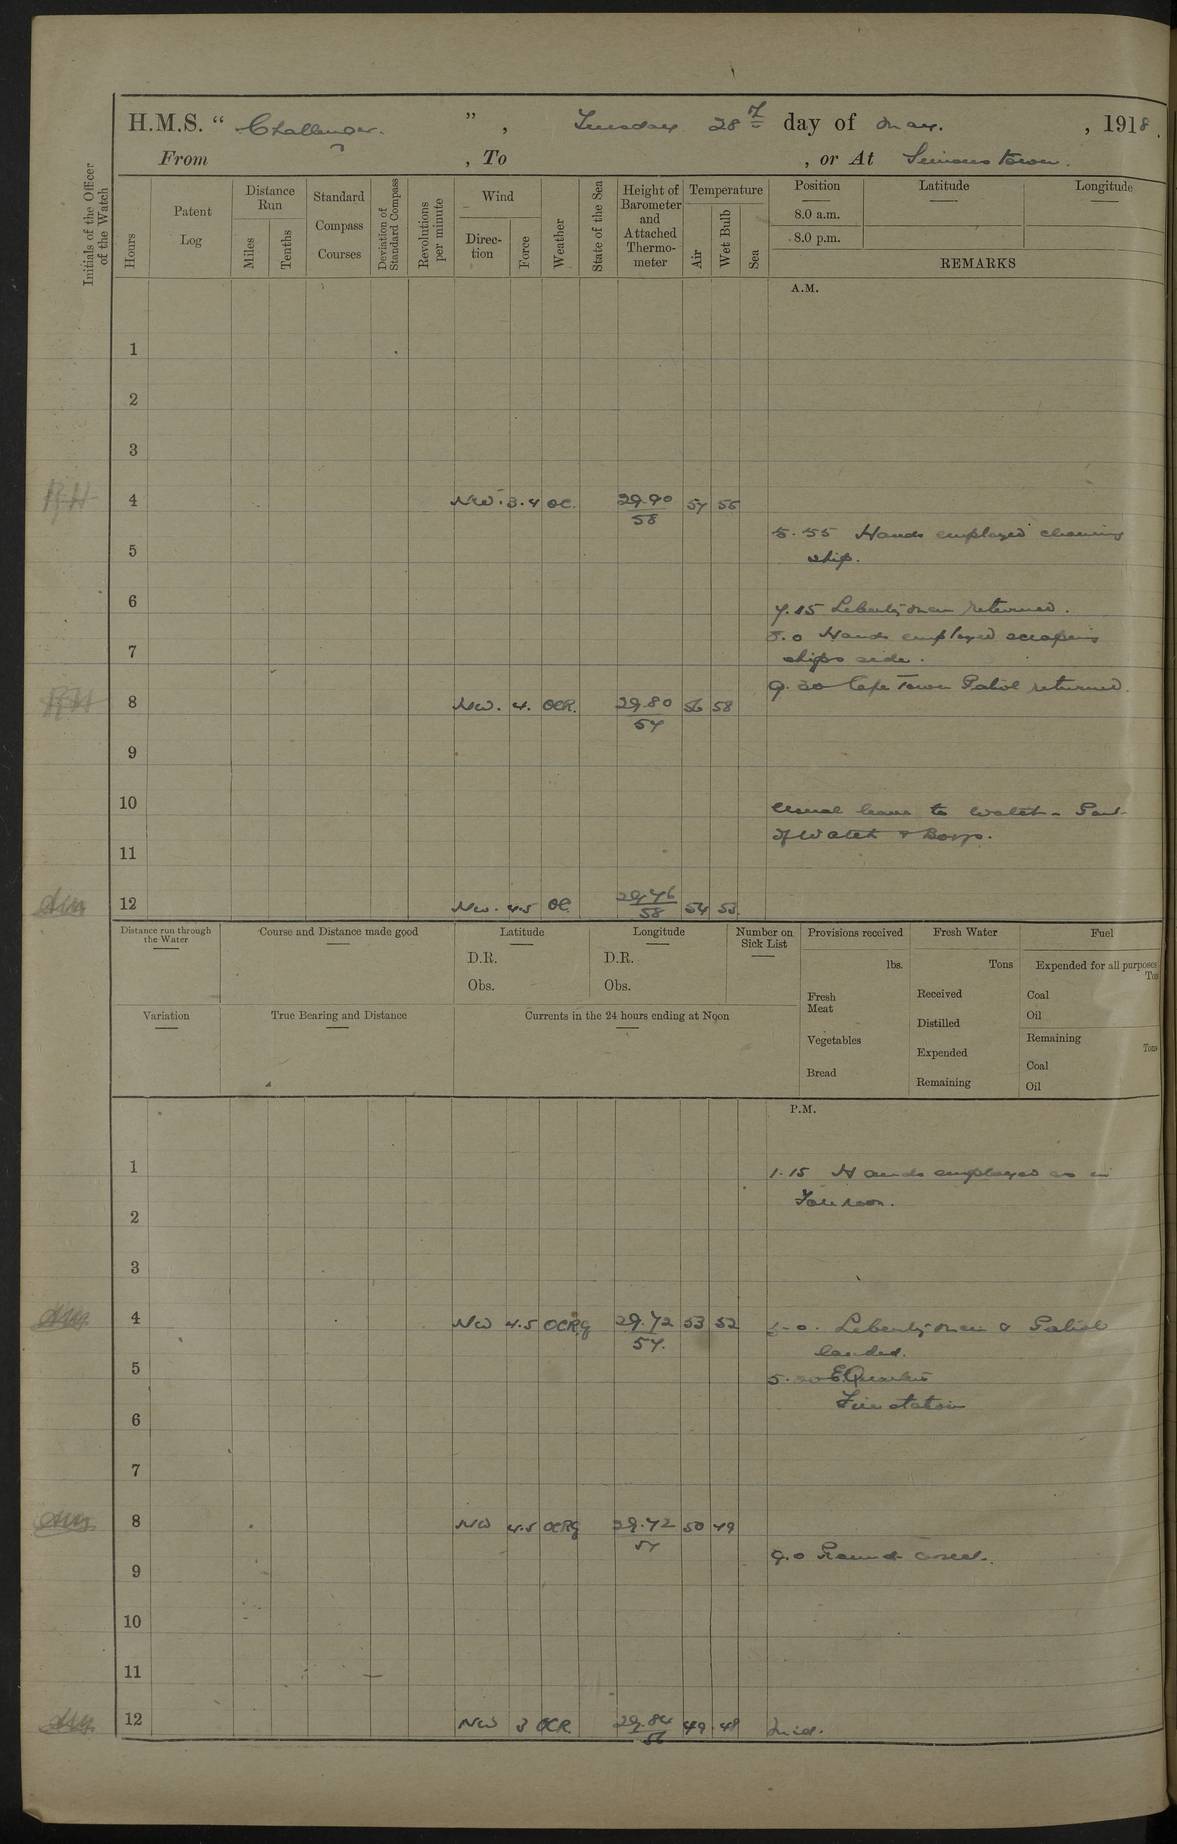 H.M.S. "Challenger.", Tuesday 28th day of May, 1918.
From , To , or At Simons town.
Initials of the Officer of the Watch
Hours
Patent Log
Distance Run
Miles
Tenths
Standard Compass Courses
Deviation of Standard Compass
Revolutions per minute
Wind
Direction
Force
Weather
State of the Sea
Height of Barometer and Attached Thermometer
Temperature
Air
Wet Bulb
Sea
Position Latitude Longitude
8.0 a.m.
8.0 p.m.
REMARKS
A.M.
1
2
3
RH 4 NW. 3.4 OC. 29.90 57 56
58
5.55 Hands employed cleaning
5
ship.
6
7.15 Liberty men returned.
8.0 Hands employed scraping
7
ships side.
9.20 Cape Town Patrol returned.
RH 8 NW. 4. OCR. 29.80 56 58
57
9
10
Usual leave to Watch - Part
of Watch & Boys.
11
12 NW. 4.5 OC 29.76 54 53
58
Distance run through the Water
Course and Distance made good
Latitude
D.R.
Obs.
Longitude
D.R.
Obs.
Number on Sick List
Provisions received
lbs.
Fresh Meat
Vegetables
Bread
Fresh Water
Tons
Received
Distilled
Expended
Remaining
Fuel
Expended for all purposes
Tons
Coal
Oil
Remaining
Tons
Coal
Oil
Variation
True Bearing and Distance
Currents in the 24 hours ending at Noon
P.M.
1
1.15 Hands employed as in
Forenoon.
2
3
4 NW 4.5 OCRQ 29.72 53 52
57.
Liberty men & Patrol
landed.
5
E. Quarters
Fire station
6
7
8 NW 4.5 OCRQ 29.72 50 49
57
9.0 Rounds correct.
9
10
11
12 NW 3 OCR 29.84 49 48 Mid.
56